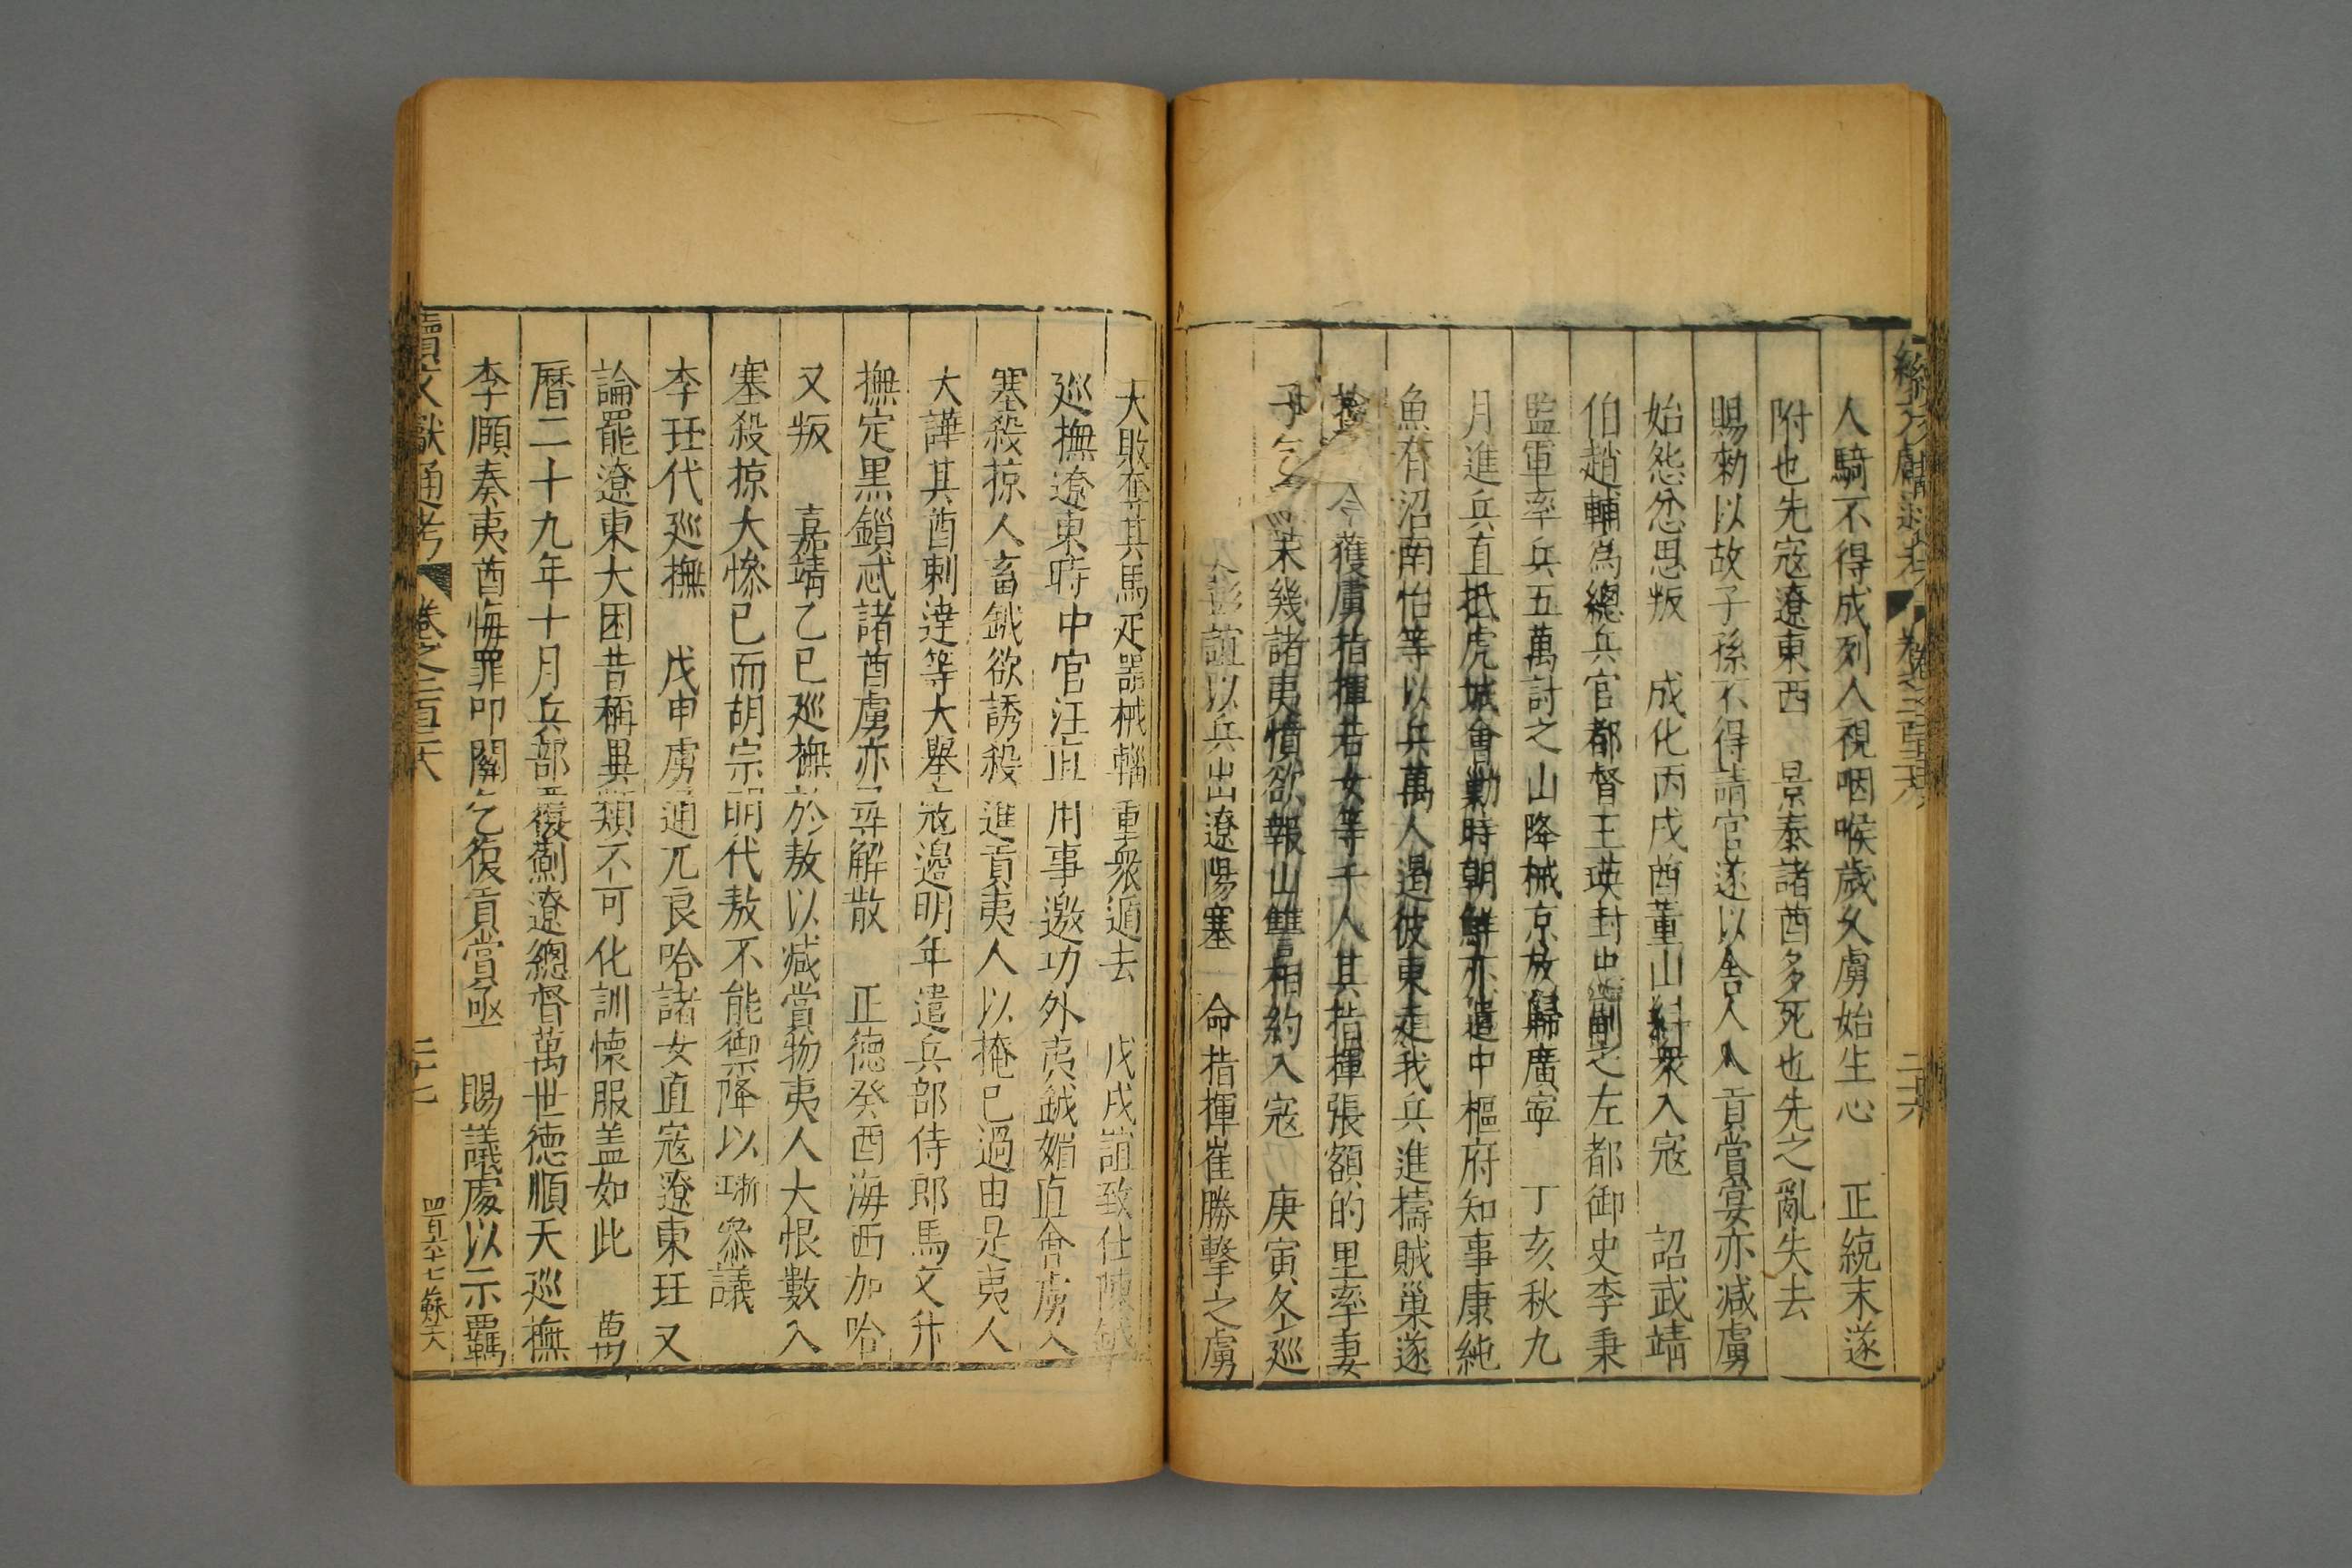 人騎不得成列人視咽喉歲久虜始生心　正統末遂
附也先寇遼東西　景泰諸酋多死也先之亂失去
賜勑以故子孫不得請官遂以舍人入貢賞宴亦减虜
始怨忿思叛　成化丙戌酋董山糾衆入寇　詔武靖
伯趙輔爲總兵官都督王瑛封副之左都御史李秉
監軍率兵五萬討之山降械京放歸廣寧　丁亥秋九
月進兵直抵虎城會勦時朝鮮亦遣中樞府知事康純
魚有沼南怡等以兵萬人遏彼東走我兵進擣賊巢遂
擒今獲虜指揮若女等千人其指揮張額的里率妻
子乞未幾諸夷憤欲報山讐相約入寇　庚寅冬巡
彭誼以兵出遼陽塞　命指揮崔勝擊之虜
大敗奪其馬疋器械輜重衆遁去　戊戌誼致仕陳鉞
巡撫遼東時中官汪直用事邀功外夷鉞媚直會虜入
塞殺掠人畜鉞欲誘殺進貢夷人以掩已過由是夷人
大譁其酋剌達等大舉寇邊明年遣兵部侍郎馬文升
撫定黑鎖忒諸酋虜亦尋解散　正德癸酉海西加哈
又叛　嘉靖乙巳巡撫於敖以减賞物夷人大恨數入
塞殺掠大慘已而胡宗明代敖不能禦降以浙江叅議
李珏代巡撫　戊申虜通兀良哈諸女直寇遼東珏又
論罷遼東大困昔稱異類不可化訓懐服盖如此　萬
曆二十九年十月兵部覆薊遼總督萬世德順天巡撫
李頤奏夷酋悔罪叩關乞復貢賞亟　賜議處以示羈
續文獻通考　卷之二百三六　二十七　四百六十七蘇六